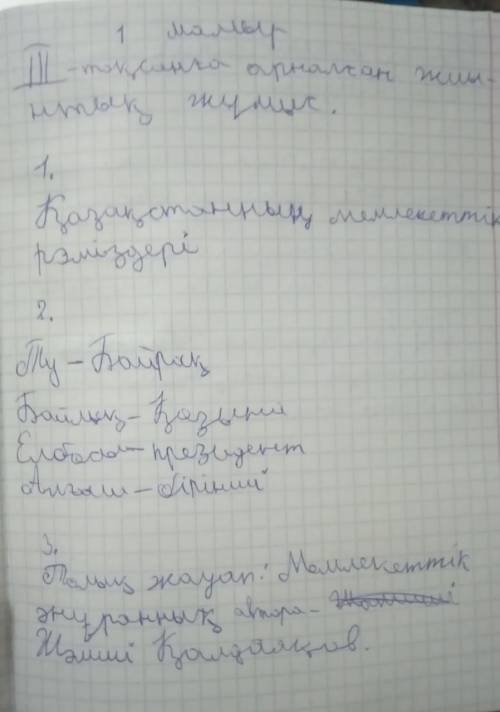 1 мамыр
III-тоқсанға арналған жиы-
нтық жұмыс.
1.
Қазақстанның мемлекеттік
рәміздері
2.
Ту - Байрақ
Байлық - Қазына
Елбасы - президент
Алғаш - бірінші
3.
Толық жауап: Мемлекеттік
әнұранның автора-
Жәмші Қалдаяқов.